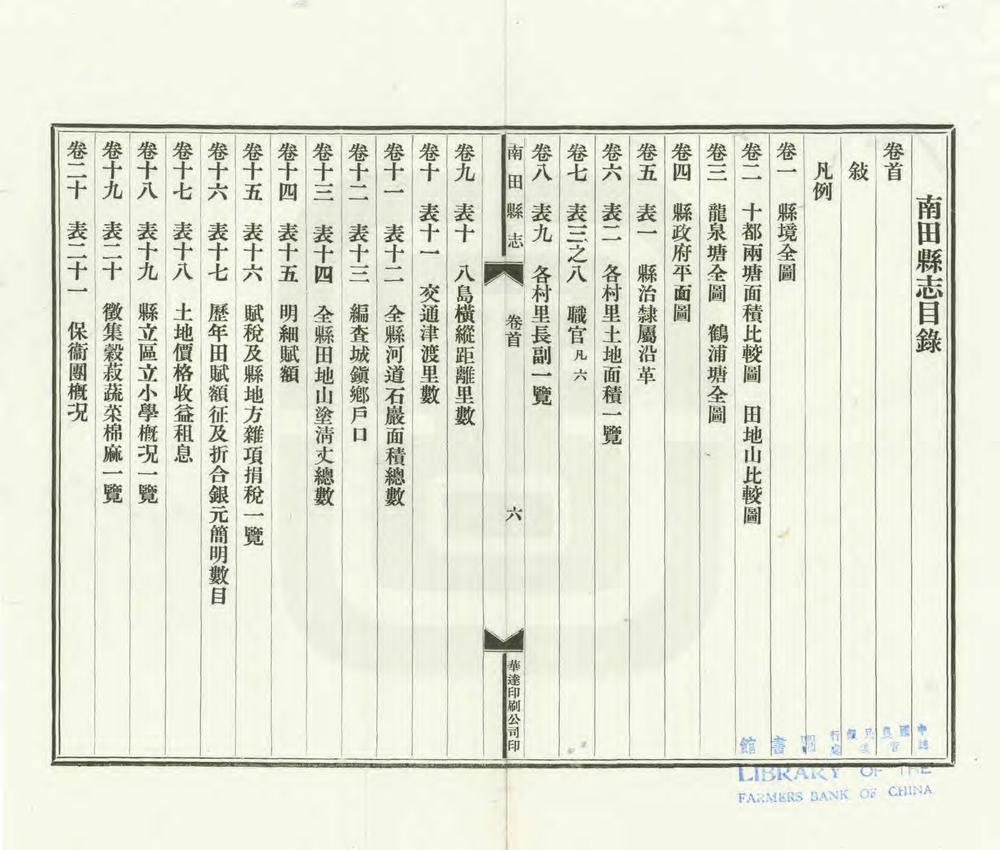 南田縣志目錄
卷首
敍
凡例
卷一　縣境全圖
卷二　十都兩塘面積比較圖　田地山比較圖
卷三　龍泉塘全圖　鶴浦塘全圖
卷四　縣政府平面圖
卷五　表一　縣治隸屬沿革
卷六　表二　各村里土地面積一覽
卷七　表三之八　職官凡六
卷八　表九　各村里長副一覽
南田縣志　卷首　六　華達印刷公司印
卷九　表十　八島橫縱距離里數
卷十　表十一　交通津渡里數
卷十一　表十二　全縣河道石巖面積總數
卷十二　表十三　編查城鎭鄉戶口
卷十三　表十四　全縣田地山塗淸丈總數
卷十四　表十五　明細賦額
卷十五　表十六　賦稅及縣地方雜項捐稅一覽
卷十六　表十七　歷年田賦額征及折合銀元簡明數目
卷十七　表十八　土地價格收益租息
卷十八　表十九　縣立區立小學槪况一覽
卷十九　表二十　徵集穀菽蔬菜棉麻一覽
卷二十　表二十一　保衞團槪况
館書圖
LIBRARY OF THE
FARMERS BANK OF CHINA